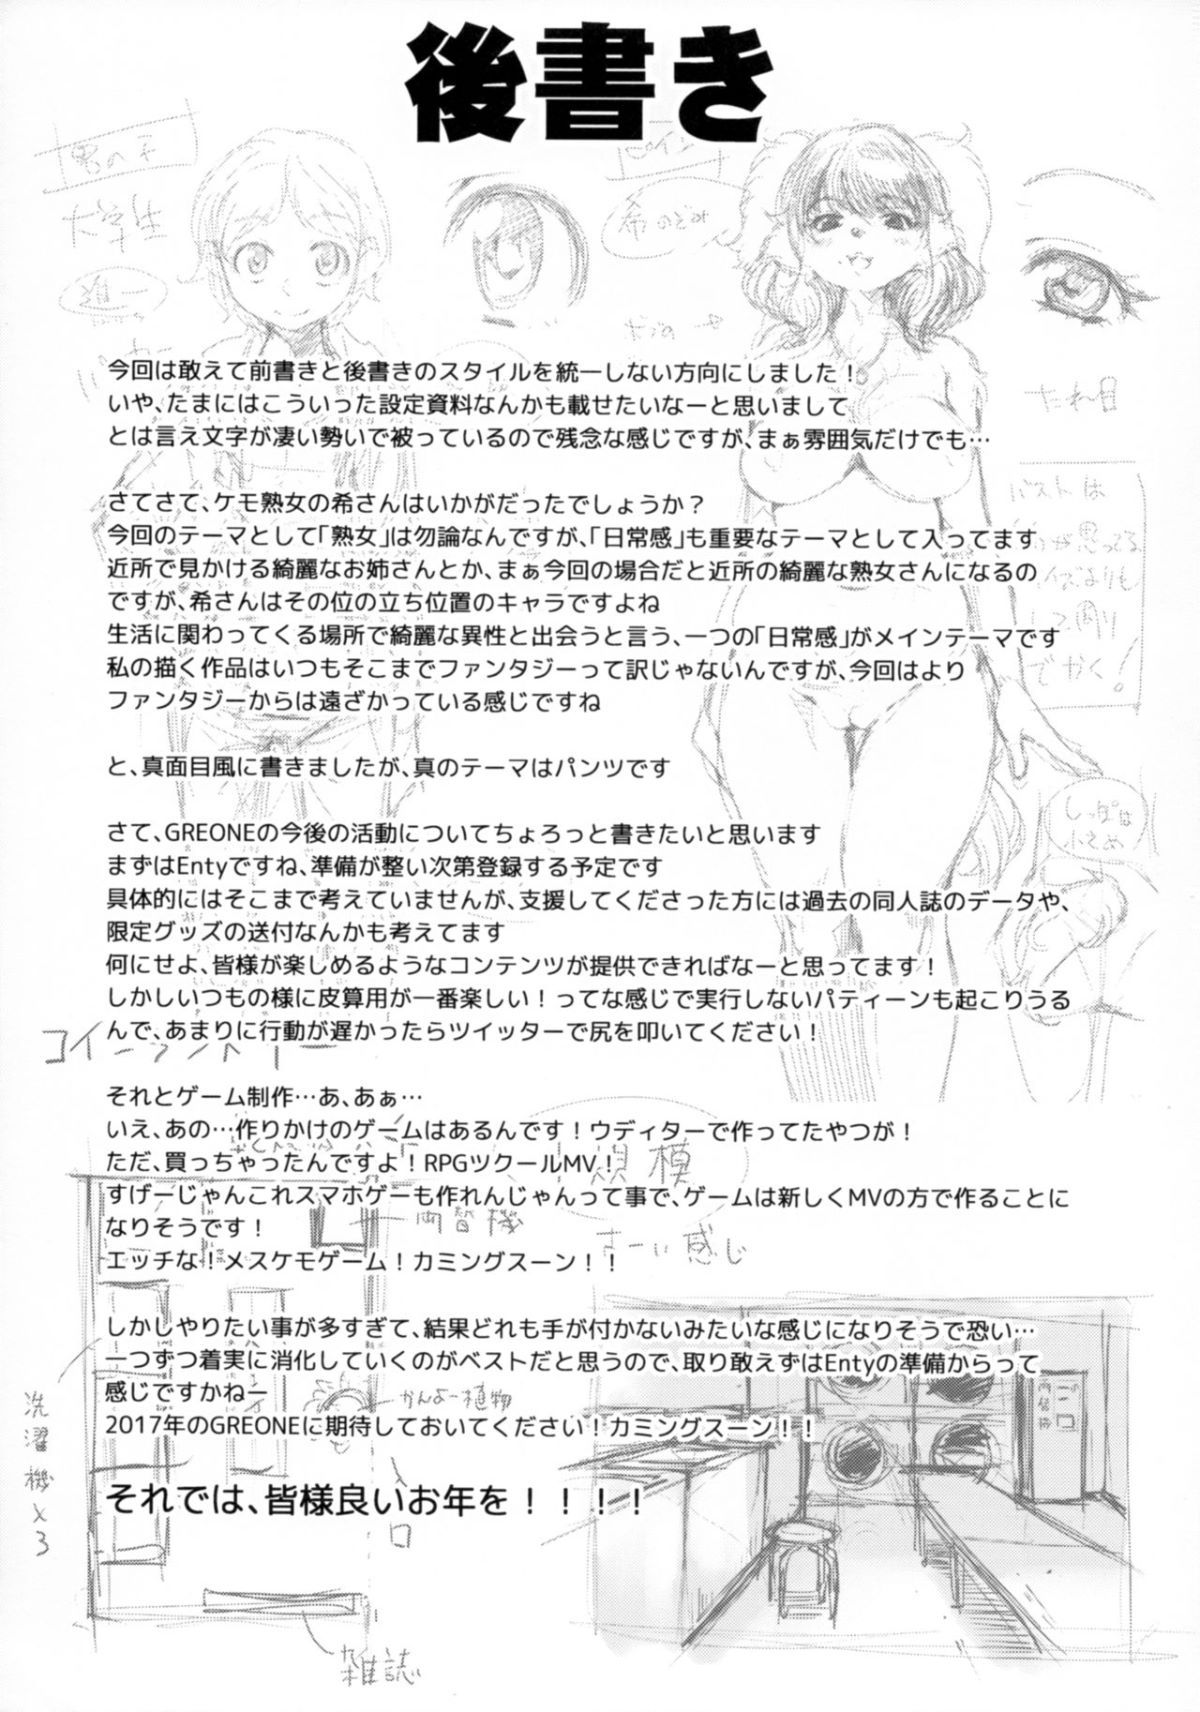 後書き
男の子
大学生
ヒロイン
たれ目
今回は敢えて前書きと後書きのスタイルを統一しない方向にしました！
いや、たまにはこういった設定資料なんかも載せたいなーと思いまして
とは言え文字が凄い勢いで被っているので残念な感じですが、まぁ雰囲気だけでも…
さてさて、ケモ熟女の希さんはいかがだったでしょうか？
今回のテーマとして「熟女」は勿論なんですが、「日常感」も重要なテーマとして入ってます
近所で見かける綺麗なお姉さんとか、まぁ今回の場合だと近所の綺麗な熟女さんになるの
ですが、希さんはその位の立ち位置のキャラですよね
生活に関わってくる場所で綺麗な異性と出会うと言う、一つの「日常感」がメインテーマです
私の描く作品はいつもそこまでファンタジーって訳じゃないんですが、今回はより
ファンタジーからは遠ざかっている感じですね
バストは
でかく！
と、真面目風に書きましたが、真のテーマはパンツです
しっぽは
小さめ
さて、GREONEの今後の活動についてちょろっと書きたいと思います
まずはEntyですね、準備が整い次第登録する予定です
具体的にはそこまで考えていませんが、支援してくださった方には過去の同人誌のデータや、
限定グッズの送付なんかも考えてます
何にせよ、皆様が楽しめるようなコンテンツが提供できればなーと思ってます！
しかしいつもの様に皮算用が一番楽しい！ってな感じで実行しないパティーンも起こりうる
んで、あまりに行動が遅かったらツイッターで尻を叩いてください！
コインランドリー
それとゲーム制作…あ、あぁ…
いえ、あの…作りかけのゲームはあるんです！ウディターで作ってたやつが！
ただ、買っちゃったんですよ！RPGツクールMV！
すげーじゃんこれスマホゲーも作れんじゃんって事で、ゲームは新しくMVの方で作ることに
なりそうです！
両替機
エッチな！メスケモゲーム！カミングスーン！！
しかしやりたい事が多すぎて、結果どれも手が付かないみたいな感じになりそうで恐い…
一つずつ着実に消化していくのがベストだと思うので、取り敢えずはEntyの準備からって
感じですかねー
かんよー植物
2017年のGREONEに期待しておいてください！カミングスーン！！
洗濯機×3
それでは、皆様良いお年を！！！！
入口
雑誌